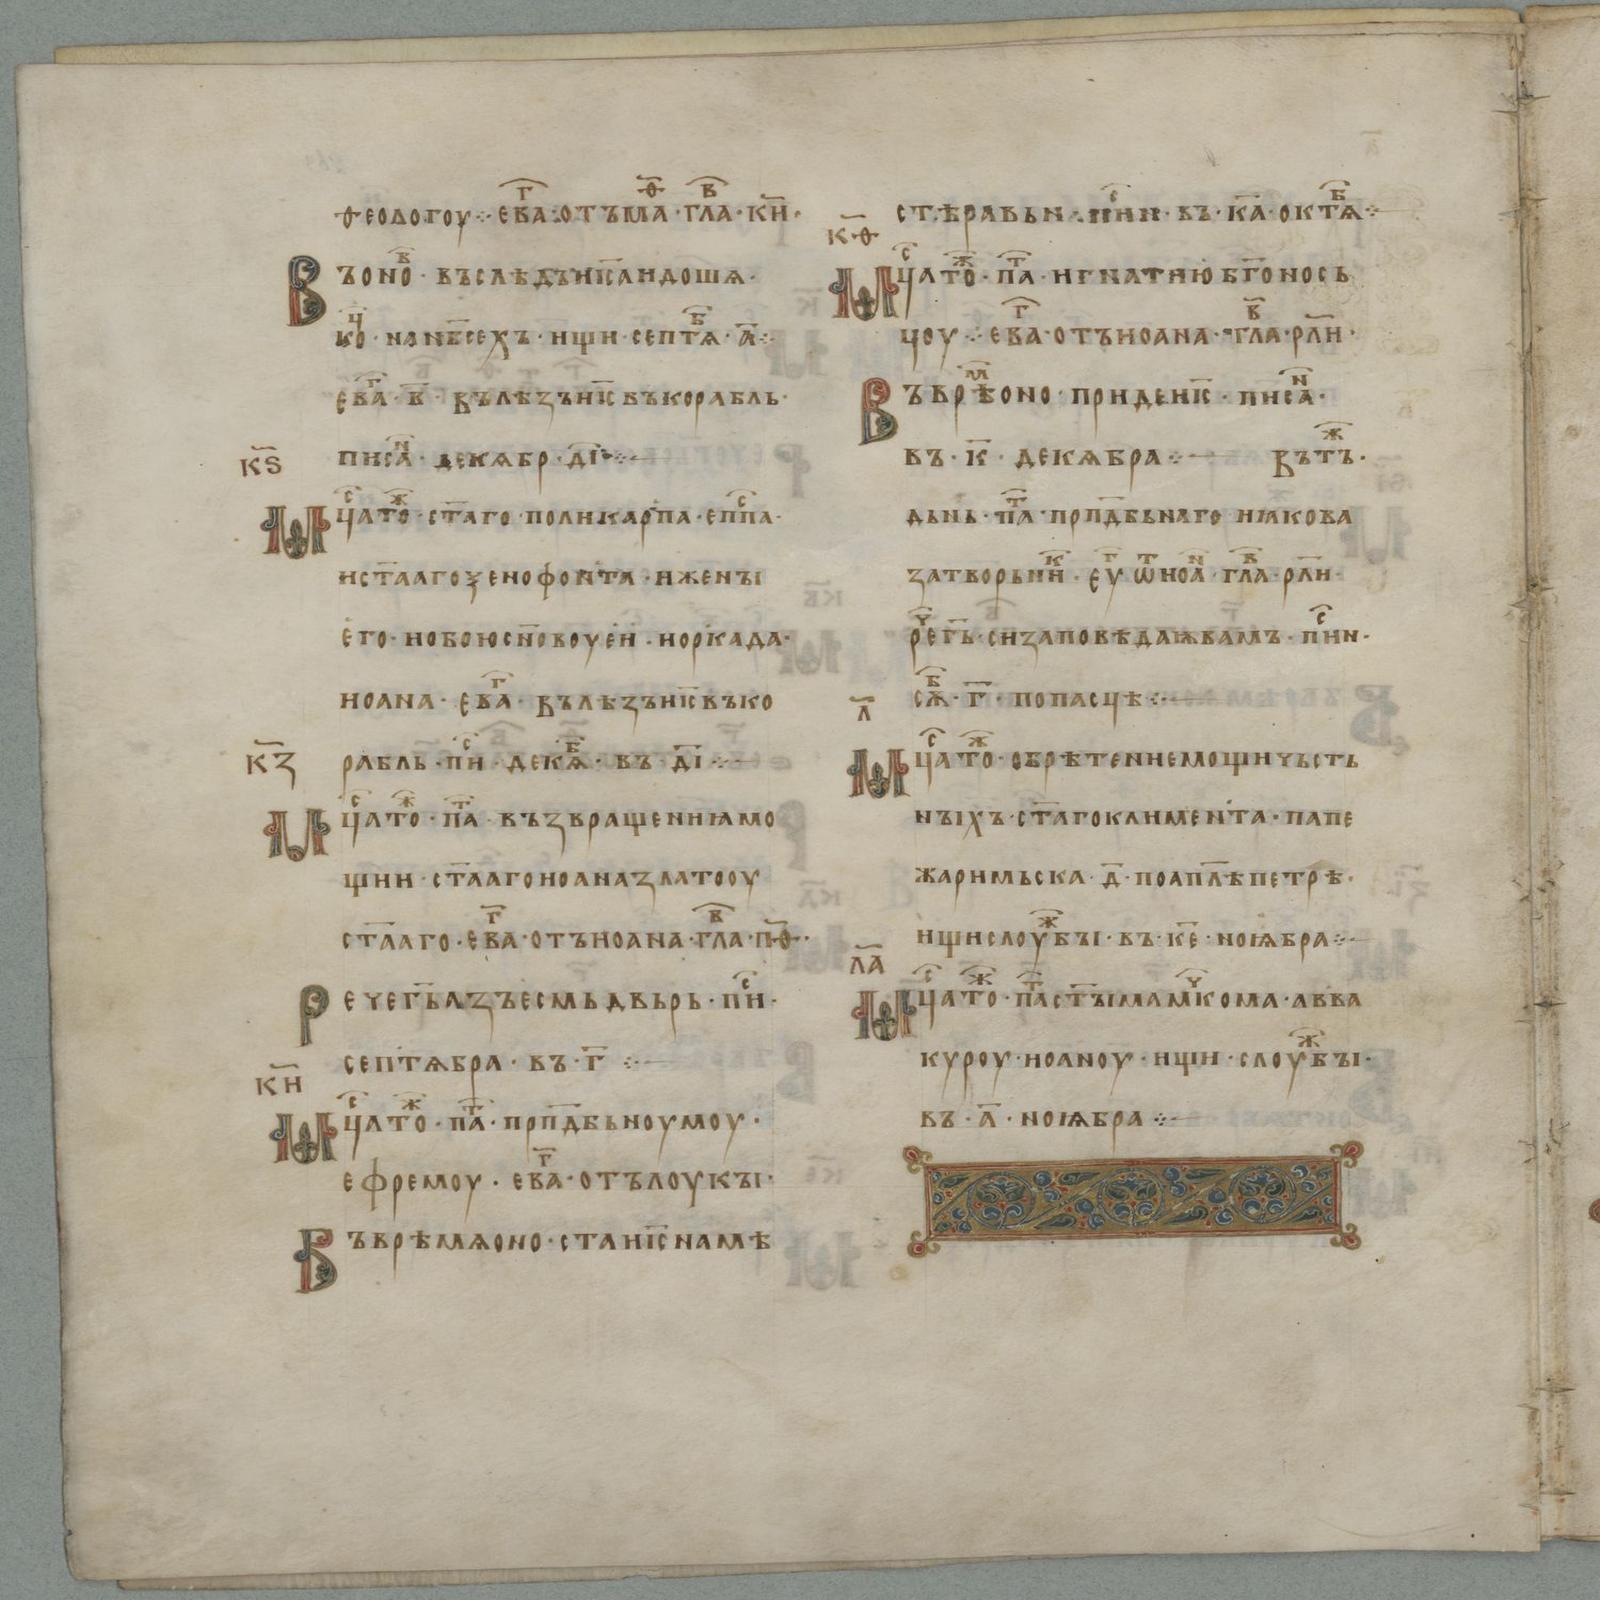 ѳеологоу · еваⷢ҇ · отъ маⷴ҇ · глаⷡ҇ · к҃н ·
Въ оноⷡ҇ · въслѣдъ и҃са идошѧ ·
коⷱ҇ · на нб҃сехъ · ищи · септѧⷠ҇ · а҃ ·
еваⷢ҇ · в҃ · Вълѣзъ и҃с въ корабль ·
писаⷩ҇ · декѧбр · д҃і
к҃ѕ
Мц҃а тоⷤ҇ · ст҃аго · поликарпа · епⷭ҇па ·
и ст҃лаго ѯенофонта · и женꙑ
его · и обою сн҃овоу еи · и оркада ·
иоана · еваⷢ҇ · Вълѣзъ и҃с въ ко
рабль · пиⷭ҇ · декѧⷠ҇ · въ · д҃і
к҃ꙁ
Мц҃а тоⷤ҇ · паⷮ҇ · въꙁвращениꙗ мо
щии · ст҃лаго иоана ꙁлатооу
ст҃лаго · еваⷢ҇ · отъ иоана · глаⷡ҇ · п҃ѳ ·
Рече г҃ь аꙁъ есмь двьрь · пиⷭ҇ ·
септѧбра · въ · г҃
к҃н
Мц҃а тоⷤ҇ · паⷮ҇ · прп҃дбьноумоу ·
ефремоу · еваⷢ҇ · отъ лоукꙑ ·
Въ врѣмѧ оно · ста и҃с на мѣ
стѣ равьн · пиⷭ҇н · въ · к҃а · октѧⷠ҇
к҃ѳ
Мц҃а тоⷤ҇ · паⷮ҇ · игнатию бг҃онось
цоу · еваⷢ҇ · отъ иоана · глаⷡ҇ · р҃ли ·
Въ врѣⷨ҇ оно · приде и҃с · писаⷩ҇ ·
въ · к҃ · декѧбра Въ тъⷤ҇ ·
дьнь · паⷮ҇ · прп҃дбьнаго иꙗкова
ꙁатворьниⷦ҇ · еуⷢ҇ ѡⷮ҇ иоаⷩ҇ · глаⷡ҇ · р҃ли ·
Реⷱ҇ г҃ь · си ꙁаповѣдаѭ вамъ · пⷭ҇ин ·
сѫⷠ҇ · г҃ · по пасцѣ
л҃
Мц҃а тоⷤ҇ · обрѣтение мощи чьсть
нꙑхъ · ст҃аго климента · папе
жа римьска · д҃ · по ап҃лѣ петрѣ ·
ищи слоуⷤ҇бꙑ · въ · к҃е · ноꙗбра
л҃а
Мц҃а тоⷤ҇ · паⷮ҇ ст҃ꙑма мⷱ҇кома · авва
куроу · иоаноу · ищи · слоуⷤ҇бꙑ ·
въ · л҃ · ноꙗбра